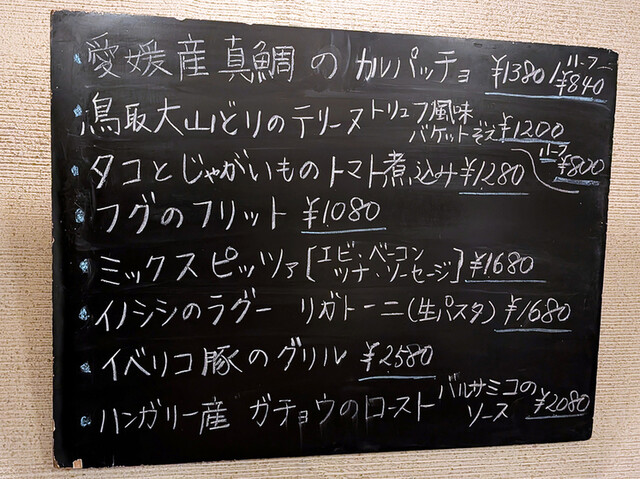 愛媛産真鯛のカルパッチョ ¥1380/ハーフ¥840
鳥取大山どりのテリーヌ トリュフ風味バケットぞえ ¥1200 ハーフ¥800
タコとじゃがいものトマト煮込み ¥1280
フグのフリット ¥1080
ミックスピッツァ[エビ・ベーコンツナ・ソーセージ] ¥1680
イノシシのラグー リガトーニ(生パスタ) ¥1,680
イベリコ豚のグリル ¥2580
ハンガリー産 ガチョウのロースト バルサミコのソース ¥2080